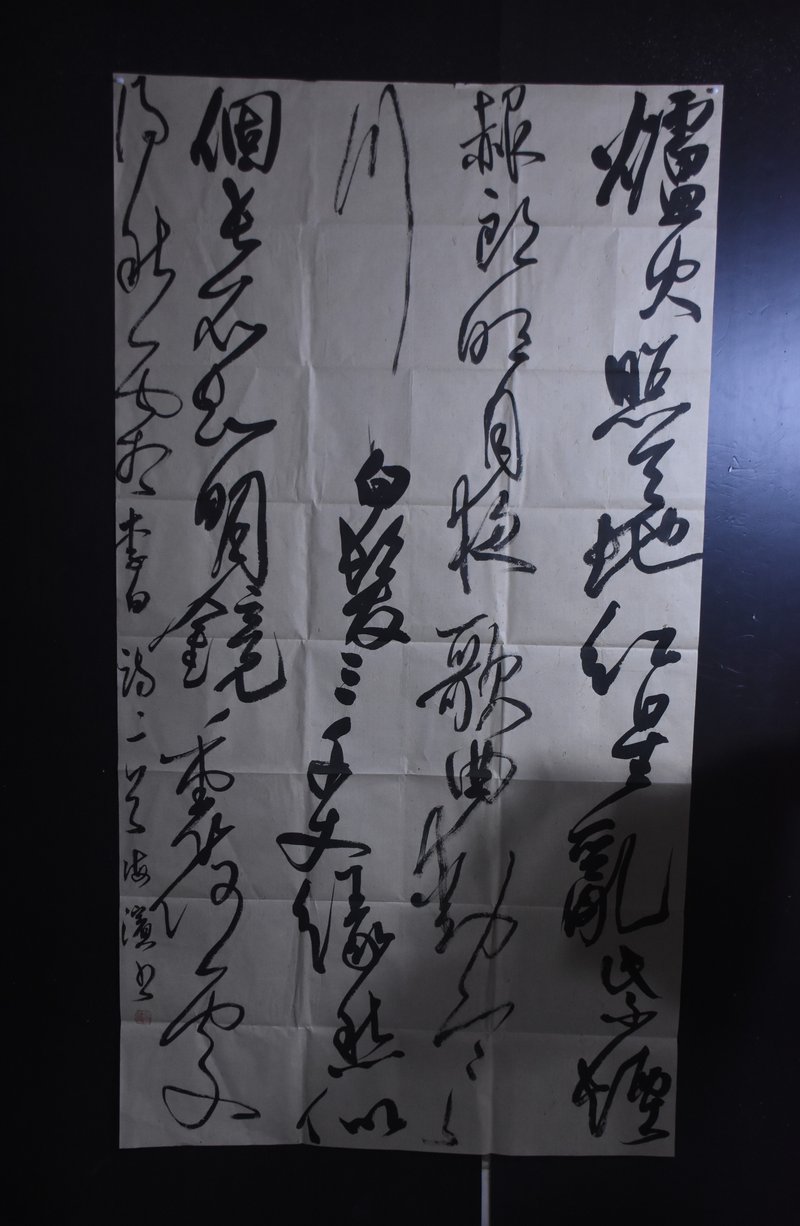 爐火照天地紅星亂紫煙
赧郎明月夜歌曲動寒
川
白髮三千丈緣愁似
個長不知明鏡裏何處
得秋霜李白詩二首海濱書